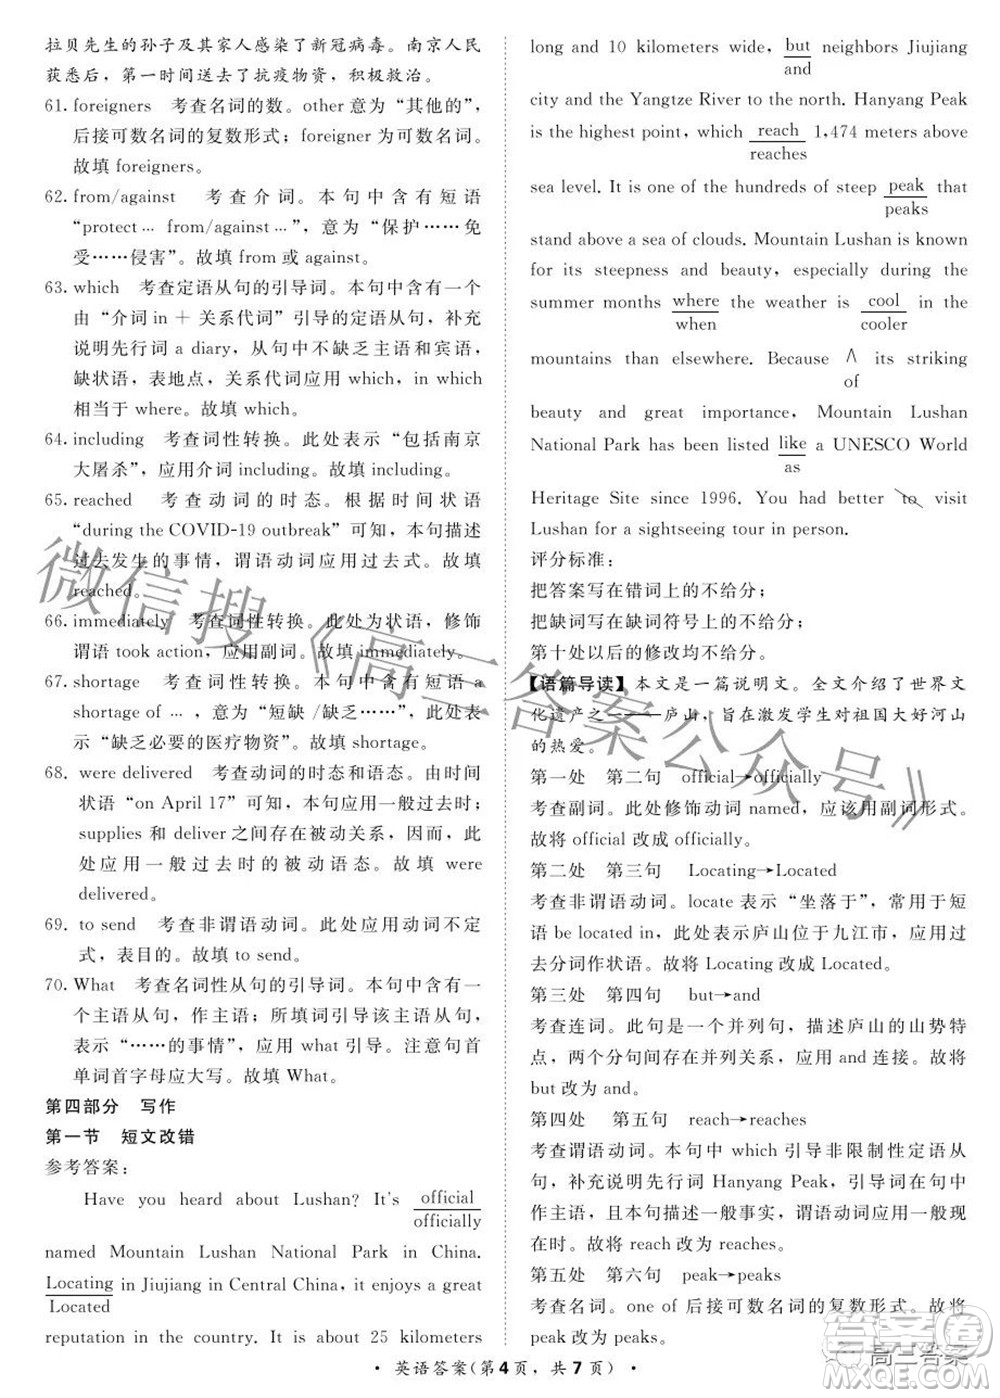 拉贝先生的孙子及其家人感染了新冠病毒。南京人民
获悉后，第一时间送去了抗疫物资，积极救治。
61. foreigners 考查名词的数。other 意为“其他的”，
后接可数名词的复数形式；foreigner 为可数名词。
故填 foreigners。
62. from/against 考查介词。本句中含有短语
“protect … from/against …”，意为“保护……免
受……侵害”。故填 from 或 against。
63. which 考查定语从句的引导词。本句中含有一个
由“介词 in + 关系代词”引导的定语从句，补充
说明先行词 a diary，从句中不缺乏主语和宾语，
缺状语，表地点，关系代词应用 which，in which
相当于 where。故填 which。
64. including 考查词性转换。此处表示“包括南京
大屠杀”，应用介词 including。故填 including。
65. reached 考查动词的时态。根据时间状语
“during the COVID-19 outbreak”可知，本句描述
过去发生的事情，谓语动词应用过去式。故填
reached。
66. immediately 考查词性转换。此处为状语，修饰
谓语 took action，应用副词。故填 immediately。
67. shortage 考查词性转换。本句中含有短语 a
shortage of …，意为“短缺/缺乏……”，此处表
示“缺乏必要的医疗物资”。故填 shortage。
68. were delivered 考查动词的时态和语态。由时间
状语“on April 17”可知，本句应用一般过去时；
supplies 和 deliver 之间存在被动关系，因而，此
处应用一般过去时的被动语态。故填 were
delivered。
69. to send 考查非谓语动词。此处应用动词不定
式，表目的。故填 to send。
70. What 考查名词性从句的引导词。本句中含有一个
主语从句，作主语；所填词引导该主语从句，
表示“……的事情”，应用 what 引导。注意句首
单词首字母应大写。故填 What。
第四部分 写作
第一节 短文改错
参考答案：
Have you heard about Lushan? It's official
officially
named Mountain Lushan National Park in China.
Locating in Jiujiang in Central China, it enjoys a great
Located
reputation in the country. It is about 25 kilometers
long and 10 kilometers wide, but neighbors Jiujiang
and
city and the Yangtze River to the north. Hanyang Peak
is the highest point, which reach 1,474 meters above
reaches
sea level. It is one of the hundreds of steep peak that
peaks
stand above a sea of clouds. Mountain Lushan is known
for its steepness and beauty, especially during the
summer months where the weather is cool in the
when cooler
mountains than elsewhere. Because ∧ its striking
of
beauty and great importance, Mountain Lushan
National Park has been listed like a UNESCO World
as
Heritage Site since 1996. You had better to visit
Lushan for a sightseeing tour in person.
评分标准：
把答案写在错词上的不给分；
把缺词写在缺词符号上的不给分；
第十处以后的修改均不给分。
【语篇导读】本文是一篇说明文。全文介绍了世界文
化遗产之一——庐山，旨在激发学生对祖国大好河山
的热爱。
第一处 第二句 official→officially
考查副词。此处修饰动词 named，应该用副词形式。
故将 official 改成 officially。
第二处 第三句 Locating→Located
考查非谓语动词。locate 表示“坐落于”，常用于短
语 be located in，此处表示庐山位于九江市，应用
过去分词作状语。故将 Locating 改成 Located。
第三处 第四句 but→and
考查连词。此句是一个并列句，描述庐山的山势特
点，两个分句间存在并列关系，应用 and 连接。故将
but 改为 and。
第四处 第五句 reach→reaches
考查谓语动词。本句中 which 引导非限制性定语从
句，补充说明先行词 Hanyang Peak，引导词在句中
作主语，且本句描述一般事实，谓语动词应用一般现
在时。故将 reach 改为 reaches。
第五处 第六句 peak→peaks
考查名词。one of 后接可数名词的复数形式。故将
peak 改为 peaks。
·英语答案（第4页，共7页）·
微信搜《高三答案公众号》
答案圈
高三答案